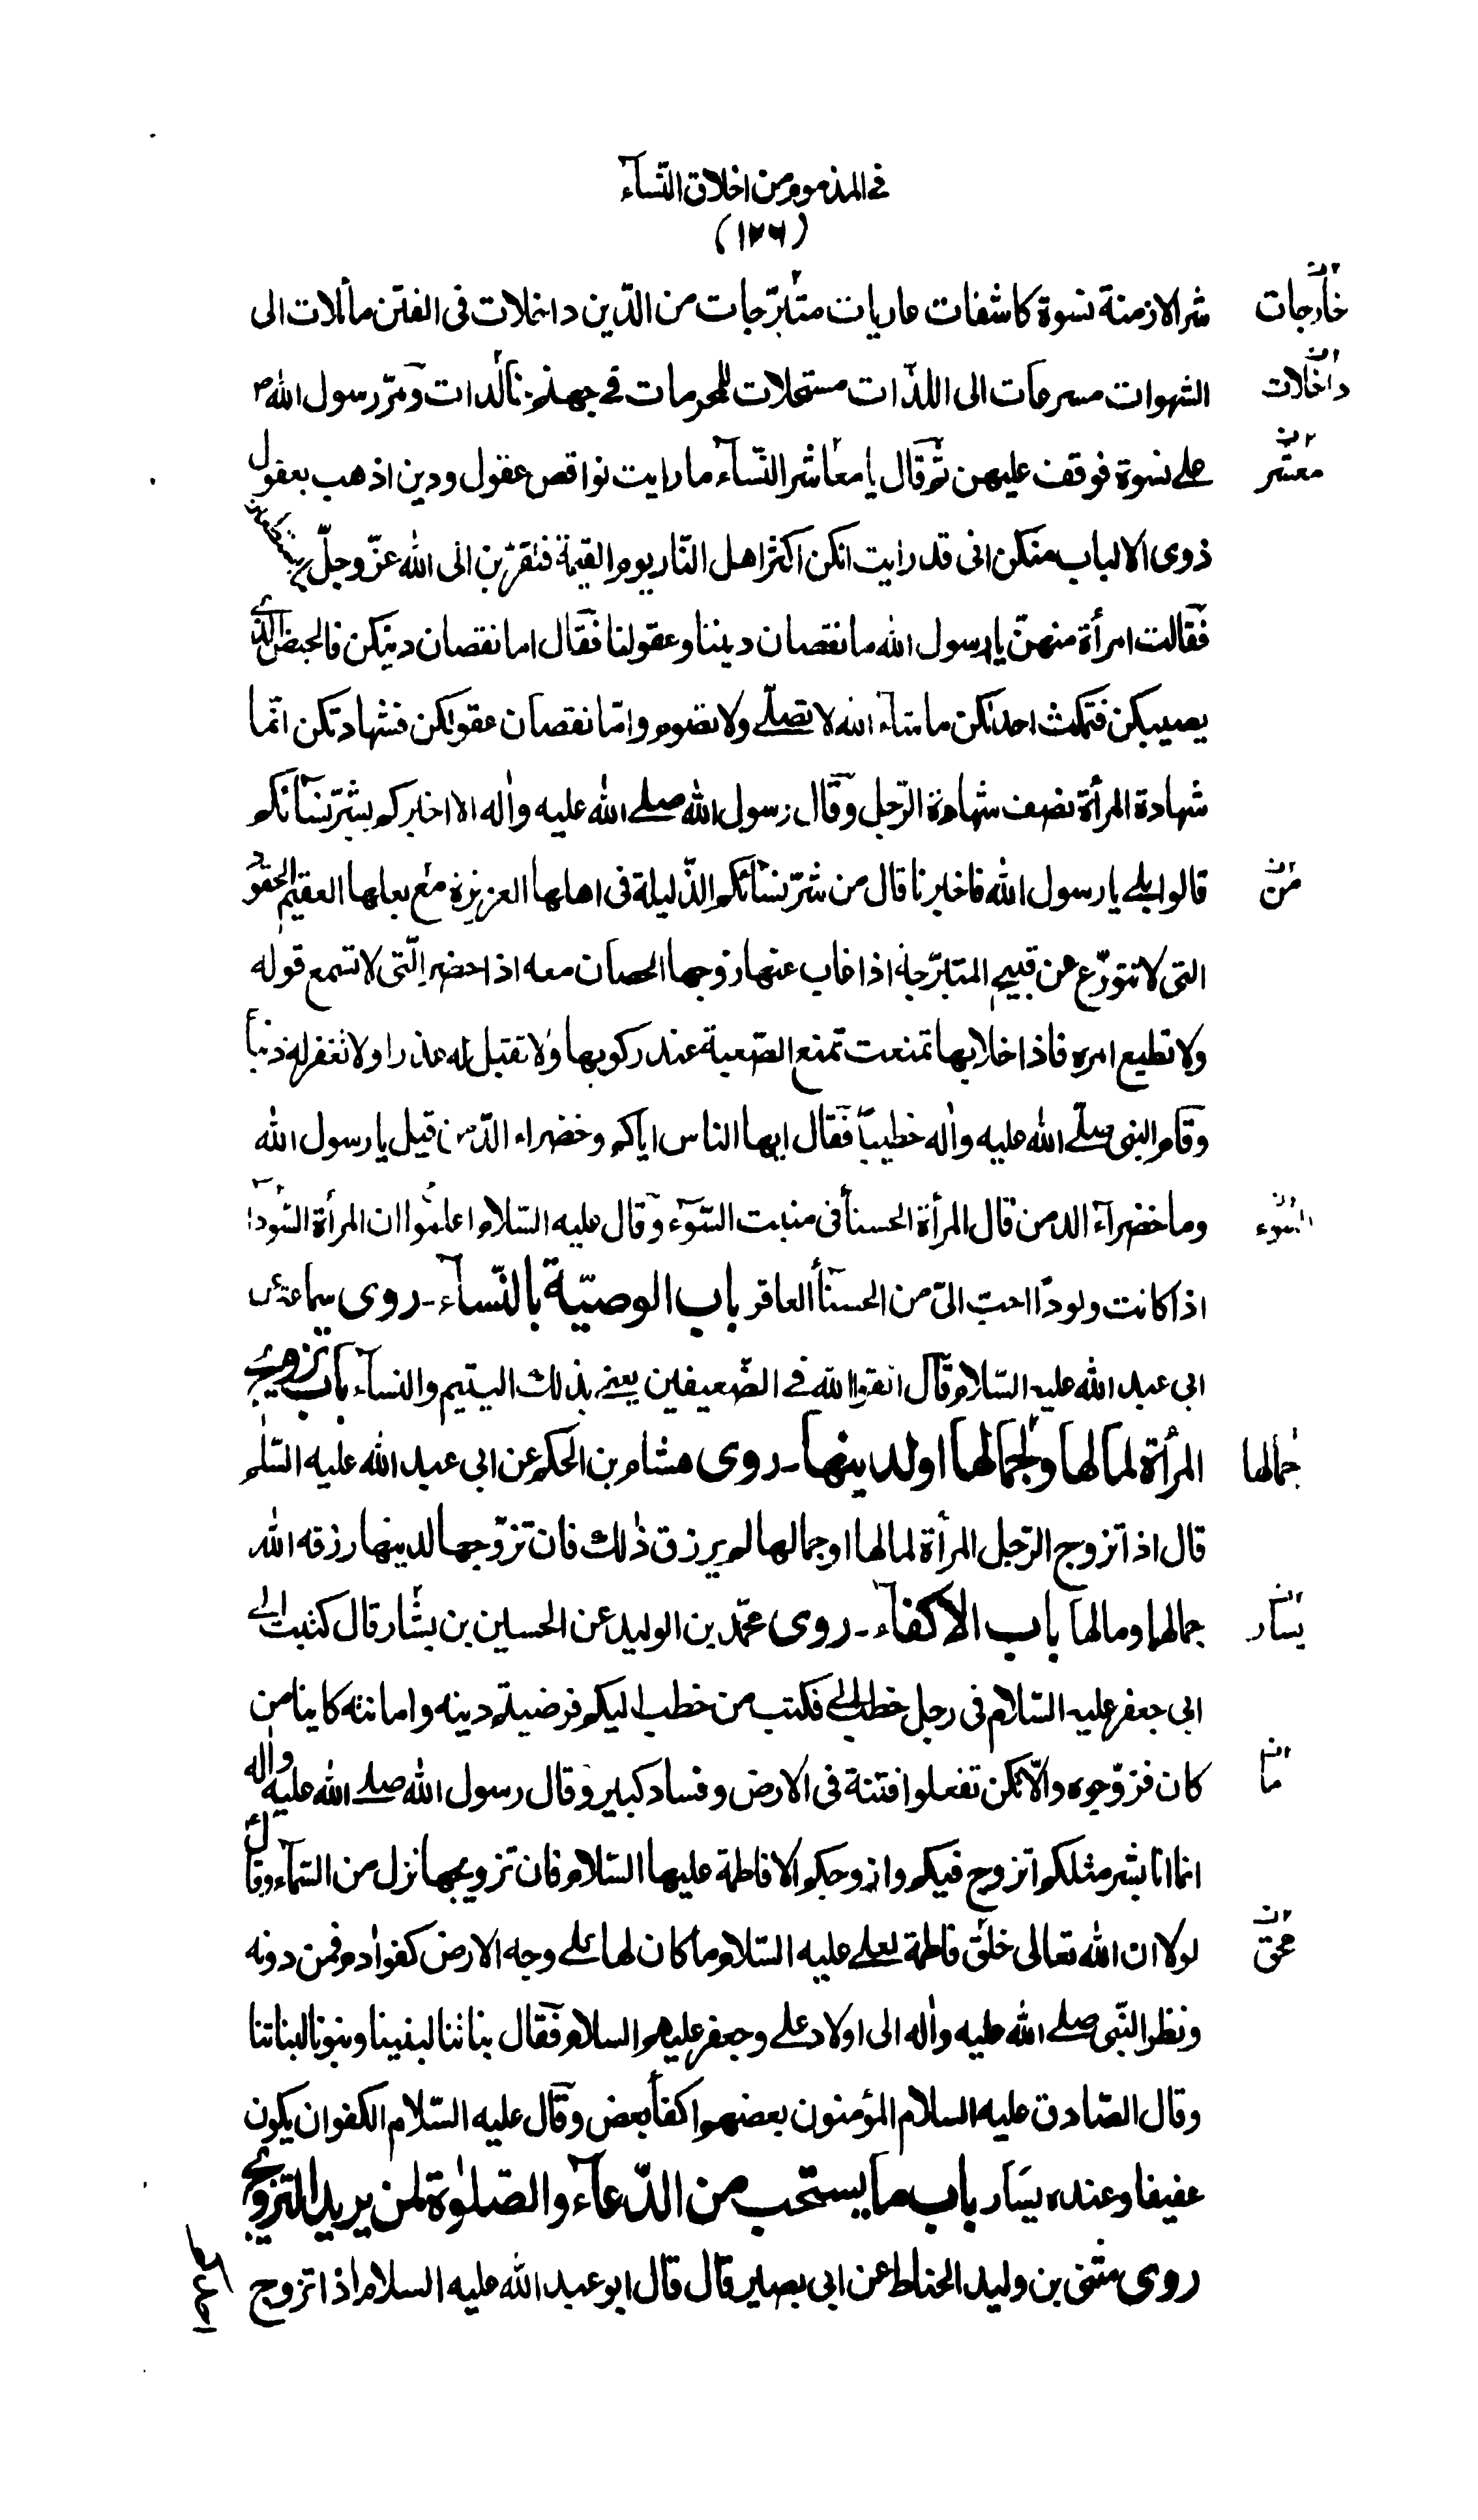 في المذموم من اخلاق النّسآء
(١٢٦)
شر الازمنة نسوة كاشفات عاريات متبرّجات من الدّين داخلات فى الفتن مائلات الى
خارجات
الشهوات مسرعات الى اللذّات مستحلات للمحرمات في جهنم خالدات ومرّ رسول الله ص
داخلات
على نسوة فوقف عليهن ثم قال يا معاشر النّسآء ما رايت نواقص عقول ودين اذهب بعقول
معشر
ذوى الالباب منكن انى قد رايت انكن اكثر اهل النّار يوم القيمة فتقرّبن الى الله عزّ وجلّ
فقالت امرأة منهنّ يا رسول الله ما نقصان ديننا وعقولنا فقال اما نقصان دينكن فالحيض الذي
يصيبكن فتمكث احداكن ما شاء الله لا تصلّي ولا تصوم وامّا نقصان عقولكن فشهادتكن انّما
شهادة المرأة نصف شهادة الرّجل وقال رسول الله صلى الله عليه واٰله الا اخبركم بشرّ نسائكم
قالوا بلى يا رسول الله فاخبرنا قال من شرّ نسائكم الذّليلة فى اهلها العزيزة مع بعلها العقيم الحقود
من
التى لا تتورّع عن قبيح المتبرّجة اذا غاب عنها زوجها الحصان معه اذا حضر الّتى لا تسمع قوله
ولا تطيع امره فاذا خلا بها تمنعت تمنع الصّعبة عند ركوبها ولا تقبل له عذرا ولا تغفر له ذنباً
وقام النبى صلّى الله عليه واٰله خطيباً فقال ايها الناس اياكم وخضراء الدّمن قيل يا رسول الله
وما خضرآء الدمن قال المرأة الحسنأ فى منبت السّوء وقال عليه السّلام اعلموا ان المرأة السّودا
السوء
اذا كانت ولودًا احبّ الىّ من الحسنأ العاقر باب الوصيّة بالنّسآء ـ روى سماعة عن
ابى عبد الله عليه السّلام قال اتقوا الله في الضّعيفين يعني بذلك اليتيم والنسآء باب تزويج
المرأة لمالها ولجمالها او لدينها ـ روى هشام بن الحكم عن ابى عبد الله عليه السّلٰم
جمالها
قال اذا تزوج الرّجل المرأة لمالها او جمالها لم يرزق ذٰلك فان تزوّجها لدينها رزقه الله
جمالها ومالها باب الاكفاء ـ روى محمّد بن الوليد عن الحسين بن بشّار قال كتبت الى
يسار
ابى جعفر عليه السّلام فى رجل خطب الي فكتب من خطب اليكم فرضيتم دينه وامانته كاينا من
كان فزوّجوه والّا تكن تفعلوا فتنة فى الارض وفساد كبير وقال رسول الله صلى الله عليه واٰله
ما
انما انا بشر مثلكم اتزوج فيكم وازوجكم الا فاطمة عليها السّلام فان تزويجها نزل من السّماء وقال
لولا ان الله تعالى خلق فاطمة لعلي عليه السّلام ما كان لها على وجه الارض كفو اٰدم فمن دونه
ونظر النّبى صلى الله عليه واٰله الى اولاد على وجعفر عليهم السلام فقال بناتنا لبنينا وبنونا لبناتنا
وقال الصّادق عليه السلام المؤمنون بعضهم اكفأ بعض وقال عليه السّلام الكفو ان يكون
عفيفا وعنده يسار باب ما يستحب من الدّعآء والصّلوٰة لمن يريد التزويج
روى مثنى بن وليد الحناط عن ابى بصير قال قال ابو عبد الله عليه السلام اذا تزوج